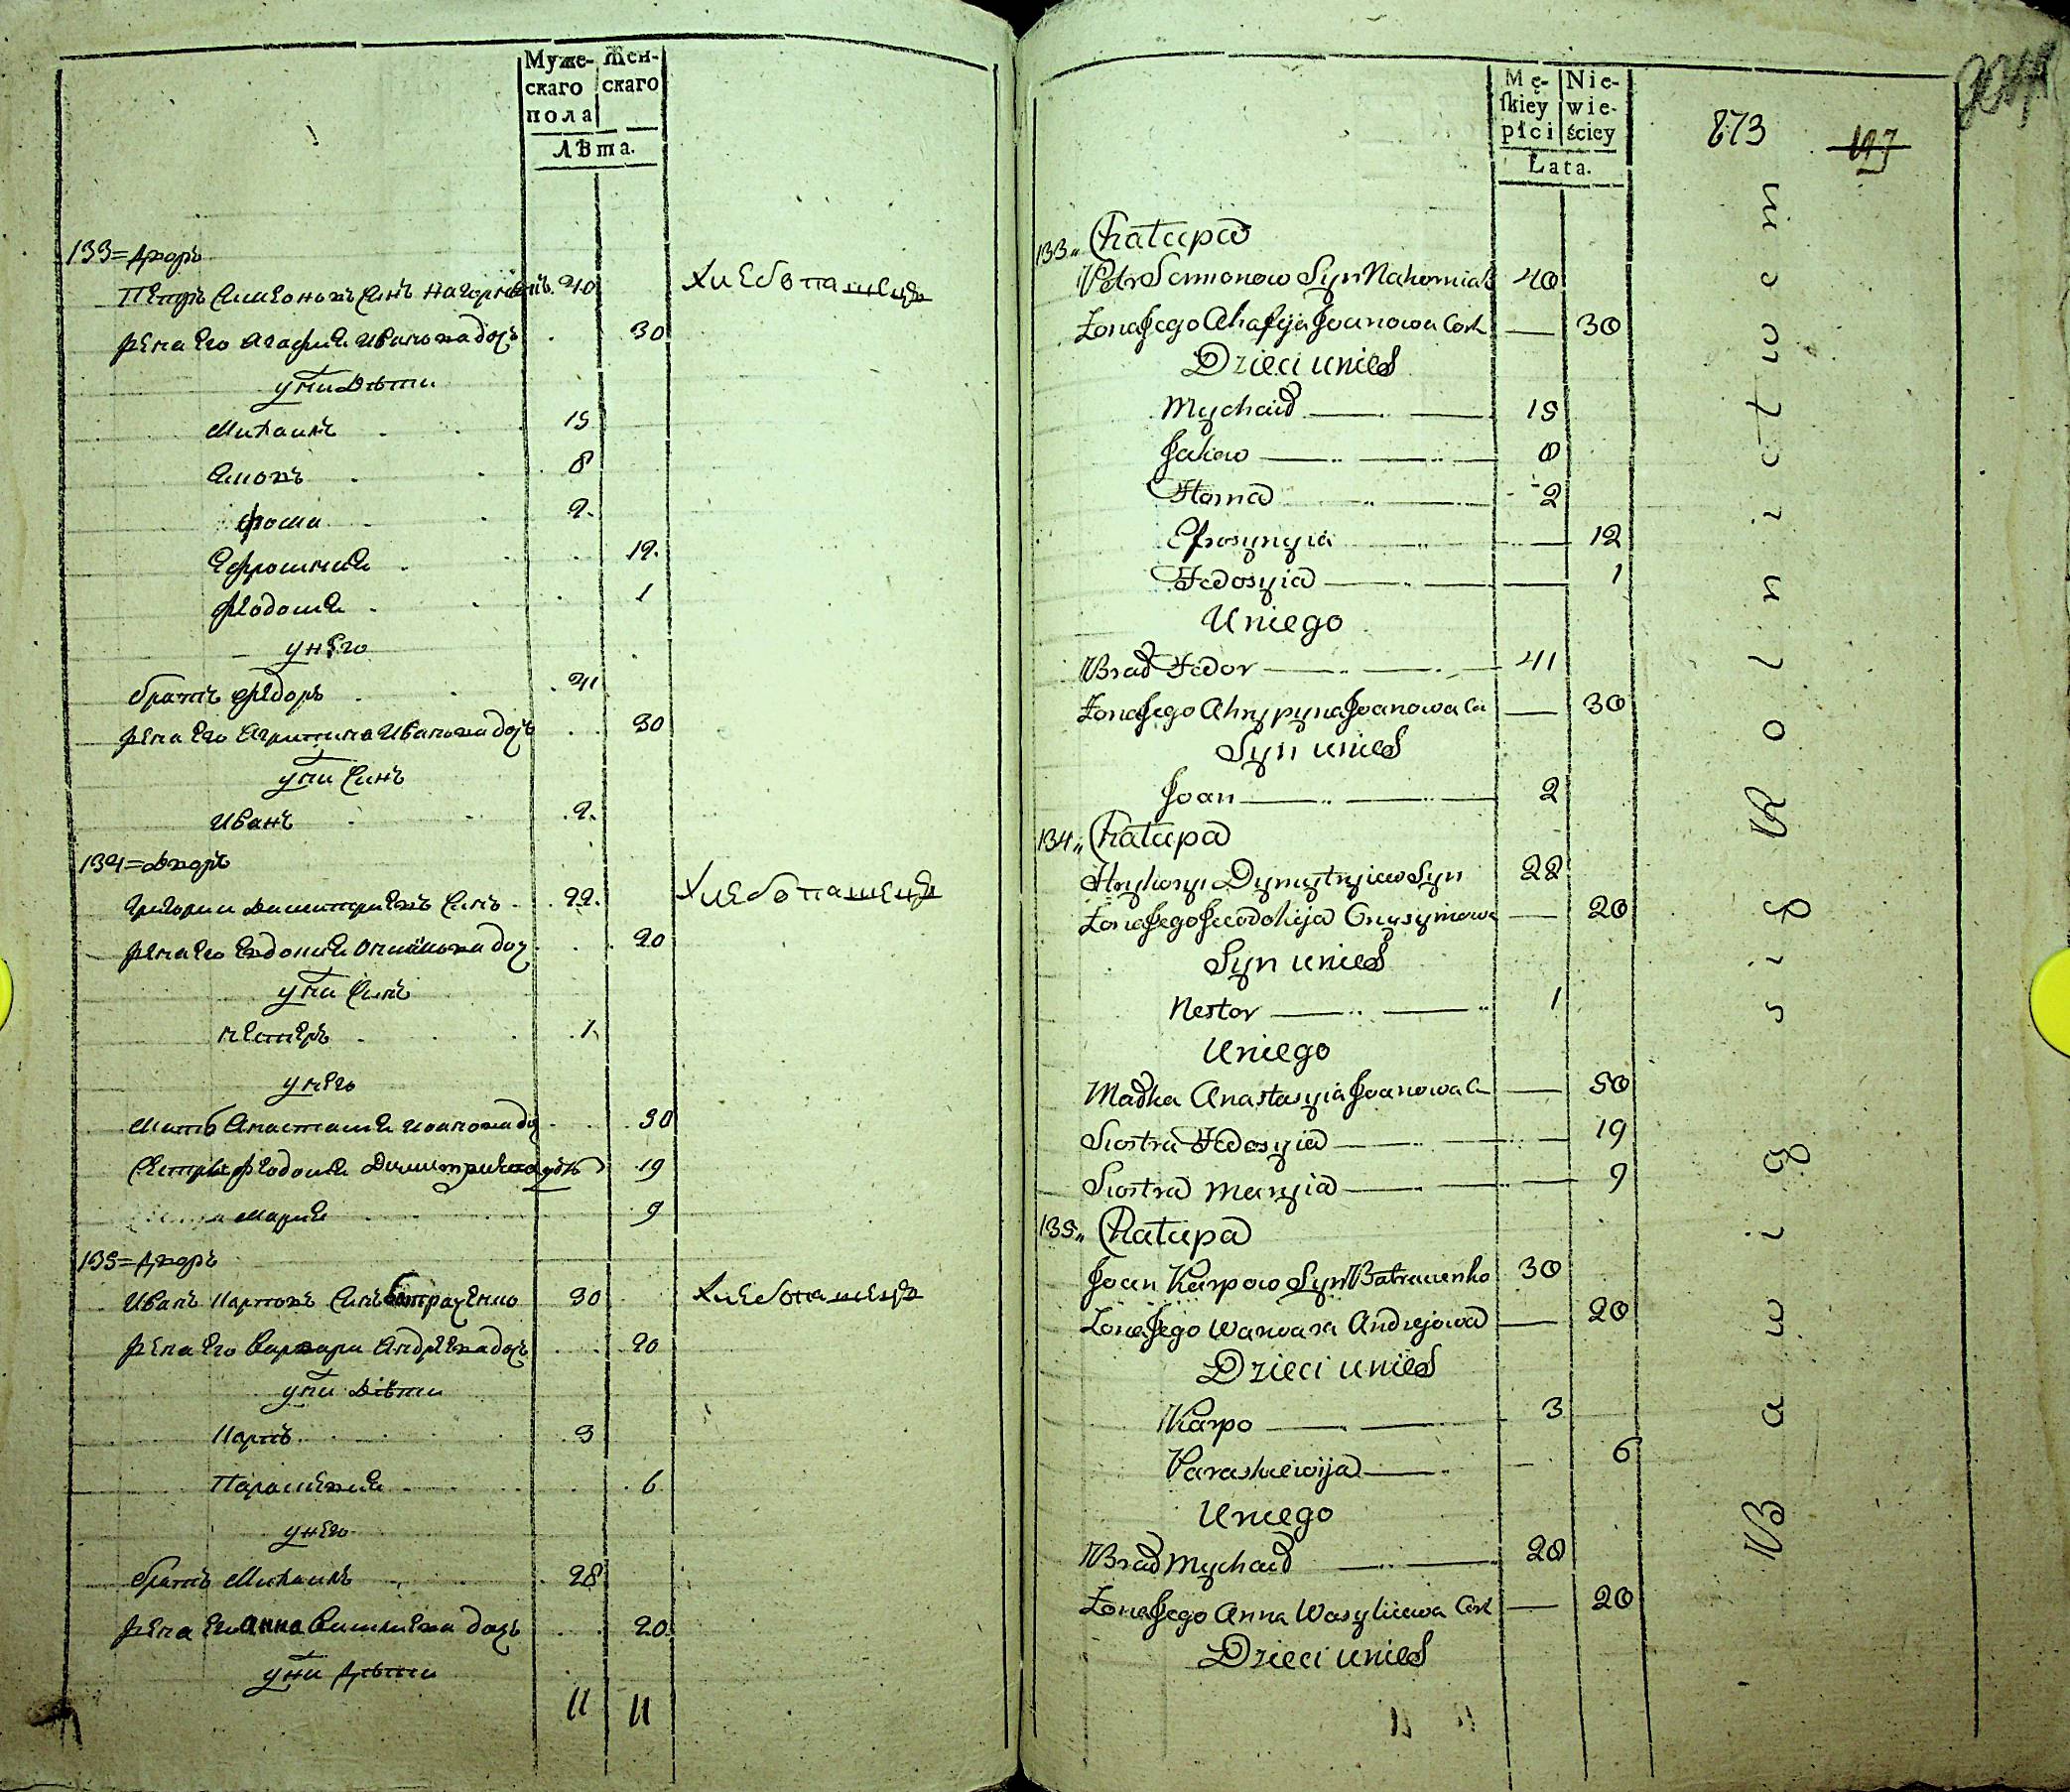 Муже-
скаго
пола
Жен-
скаго
лѣта.
133 = дворъ
Петръ Симеоновъ синъ Нагорнякъ 40 хлебопашецъ
жена его Агафия Иванова дочь 30
у них дѣти
Михаилъ 15
8
Фома 2
Ефросиния 12
Феодосия 1
у него
братъ Феодоръ 41
жена его Агрипина Иванова дочъ 30
у них синъ
Иванъ 2
134 = дворъ
Григории Димитриевъ синъ 22 хлебопашецъ
жена его Евдокия дочъ 20
у них синъ
Нестеръ 1
у него
мать Анастасия Иванова до 50
сестра Феодосия Димитриева 19
Мария 9
135 = дворъ
Иванъ Карповъ синъ Батраченко 30 хлебопашецъ
жена его Варвара Андреева дочъ 20
у них дѣти
Карпъ 3
Параскевия 6
у него
братъ Михаилъ 28
жена его Анна Василиева дочъ 20
у них дѣти
11 11
Mę-
skiey
płci
Nie-
wie-
ściey
Łata.
873
197
133 „ Chałupa
Petr Semionow Syn Nahorniak 40
Żona Jego Ahafija Joanowa Cork 30
Dzieci unich
Mychaił 15
Jakow 8
Homa 2
Efrosynyia 12
Fedosyia 1
Uniego
Brad Fedor 41
Żona Jego Ahrypyna Joanowa Co 30
Syn unich
Joan 2
134 „ Chałupa
Hryhoryi Dymytryiew Syn 22
Żona Jego Jewdokija Onysymowa 20
Syn unich
Nestor 1
Uniego
Madka Anastasyia Joanowa C 50
Siostra Fedosyia 19
Siostra Maryia 9
135 „ Chałupa
Joan Karpow Syn Batraczenko 30
Żona Jego Warwara Andrejowa 20
Dzieci unich
Karpo 3
Paraskiewija 6
Uniego
Brad Mychaił 28
Żona Jego Anna Wasyliiewa Cork 20
Dzieci unich
Bawią się Rolnictwem